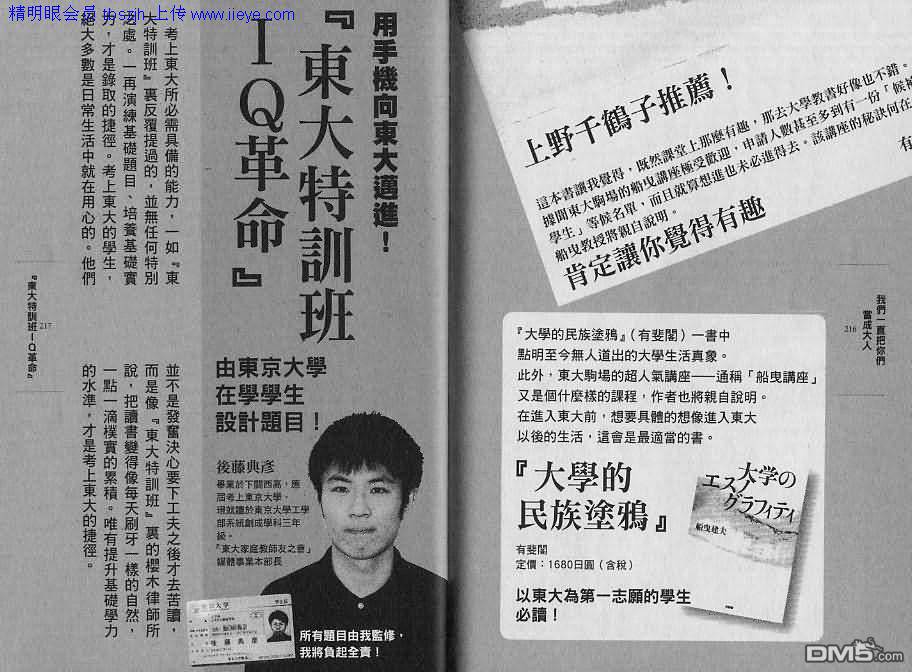 精明眼会员 tbszjh 上传 www.iieye.com
上野千鶴子推薦！
這本書讓我覺得，既然課堂上那麼有趣，那去大學教書好像也不錯。
據聞東大駒場的船曳講座極受歡迎，申請人數甚至多到有一份「候補
學生」等候名單，而且就算想進也未必進得去。該講座的秘訣何在
船曳教授將親自說明。
有
肯定讓你覺得有趣
『大學的民族塗鴉』（有斐閣）一書中
點明至今無人道出的大學生活真象。
此外，東大駒場的超人氣講座——通稱「船曳講座」
又是個什麼樣的課程，作者也將親自說明。
在進入東大前，想要具體的想像進入東大
以後的生活，這會是最適當的書。
『大學的
民族塗鴉』
有斐閣
定價：1680日圓（含稅）
以東大為第一志願的學生
必讀！
大学の
エスノ
グラフィティ
船曳建夫
我們一直把你們
當成大人
216
用手機向東大邁進！
『東大特訓班
IQ革命』
由東京大學
在學學生
設計題目！
後藤典彥
畢業於下關西高，應
屆考上東京大學。
現就讀於東京大學工學
部系統創成學科三年
級。
「東大家庭教師友之會」
媒體事業本部長
所有題目由我監修，
我將負起全責！
考上東大所必需具備的能力，一如『東
大特訓班』裏反覆提過的，並無任何特別
之處。一再演練基礎題目、培養基礎實
力，才是錄取的捷徑。考上東大的學生，
絕大多數是日常生活中就在用心的。他們
並不是發奮決心要下工夫之後才去苦讀，
而是像『東大特訓班』裏的櫻木律師所
說，把讀書變得像每天刷牙一樣的自然，
一點一滴樸實的累積。唯有提升基礎學力
的水準，才是考上東大的捷徑。
『東大特訓班IQ革命』
217
DM5.com